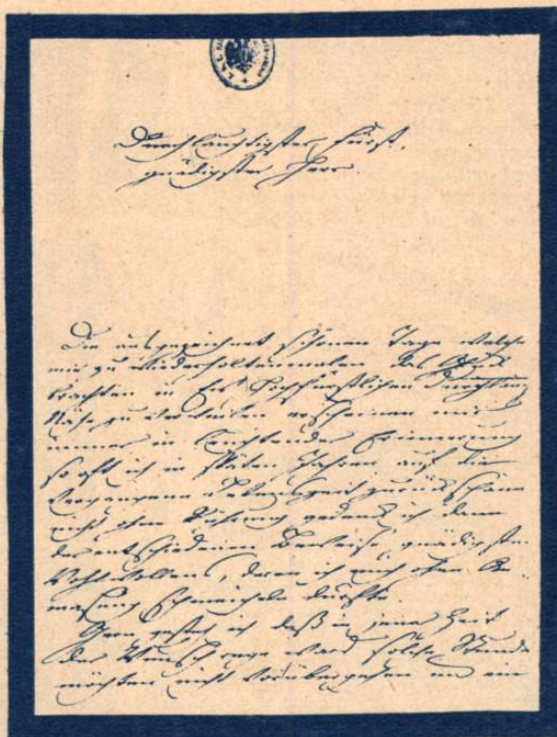 Durchlauchtigster Fürst,
gnädigster Herr.
Die ausgezeichnet schönen Tage welche
mir zu wiederholtenmalen das
brachten in Hochfürstlichen Durchlaucht
Nähe zu verweilen erscheinen mir
immer in leuchtender Erinnerung
so oft ich in späten Jahren auf die
vergangene Lebenszeit zurück schaue
nicht ohne Rührung gedenk ich dann
der entschiedenen Beweise, gnädigsten
Wohlwollens, deren ich mich ohne An-
maßung schmeicheln durfte.
Gern gesteh ich daß in jener Zeit
der Wunsch rege ward solche Stunden
möchten nicht vorübergehen um ein